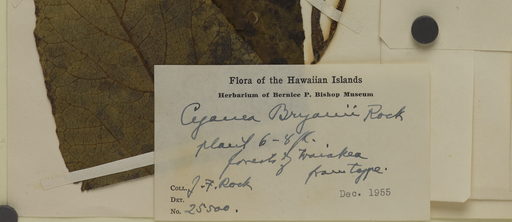 Flora of the Hawaiian Islands
Herbarium of Bernice P. Bishop Museum
Cyanea Bryanii Rock
plant 6-8 ft.
forests of Waiakea
from type.
Coll. J. F. Rock
Det.
Dec. 1955
No. 25500.